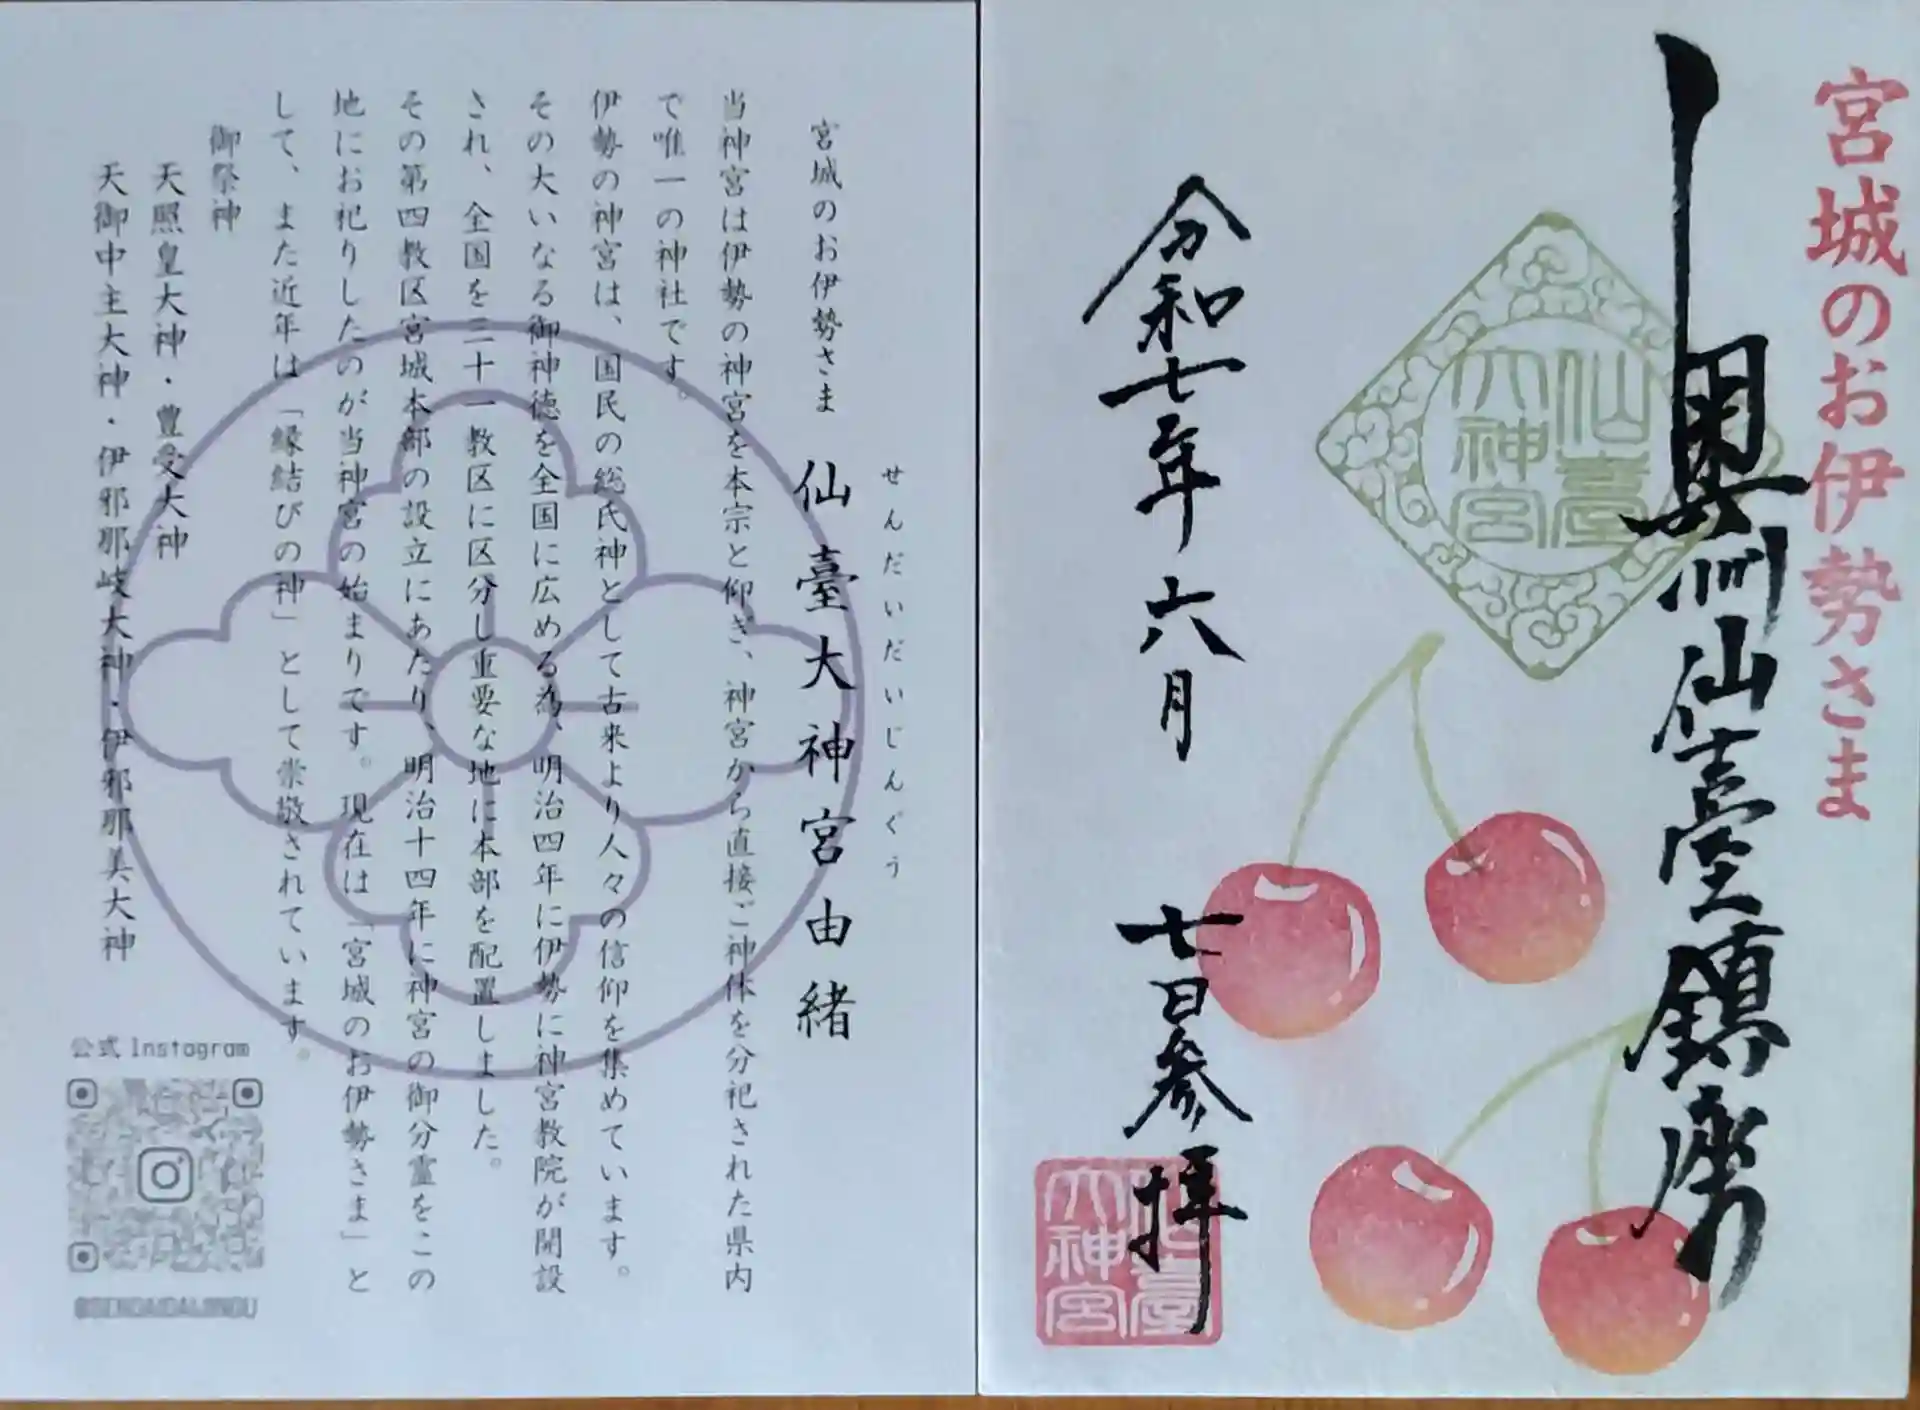 宮城のお伊勢さま
奥州仙臺鎮座
仙臺
大神宮
令和七年六月
七日参拝
仙臺
大神宮
せんだいだいじんぐう
宮城のお伊勢さま 仙臺大神宮由緒
当神宮は伊勢の神宮を本宗と仰ぎ、神宮から直接ご神体を分祀された県内
で唯一の神社です。
伊勢の神宮は、国民の総氏神として古来より人々の信仰を集めています。
その大いなる御神徳を全国に広める為、明治四年に伊勢に神宮教院が開設
され、全国を三十一教区に区分し重要な地に本部を配置しました。
その第四教区宮城本部の設立にあたり、明治十四年に神宮の御分霊をこの
地にお祀りしたのが当神宮の始まりです。現在は「宮城のお伊勢さま」と
して、また近年は「縁結びの神」として崇敬されています。
御祭神
天照皇大神・豊受大神
天御中主大神・伊邪那岐大神・伊邪那美大神
公式Instagram
@SENDAIDAIJINGU